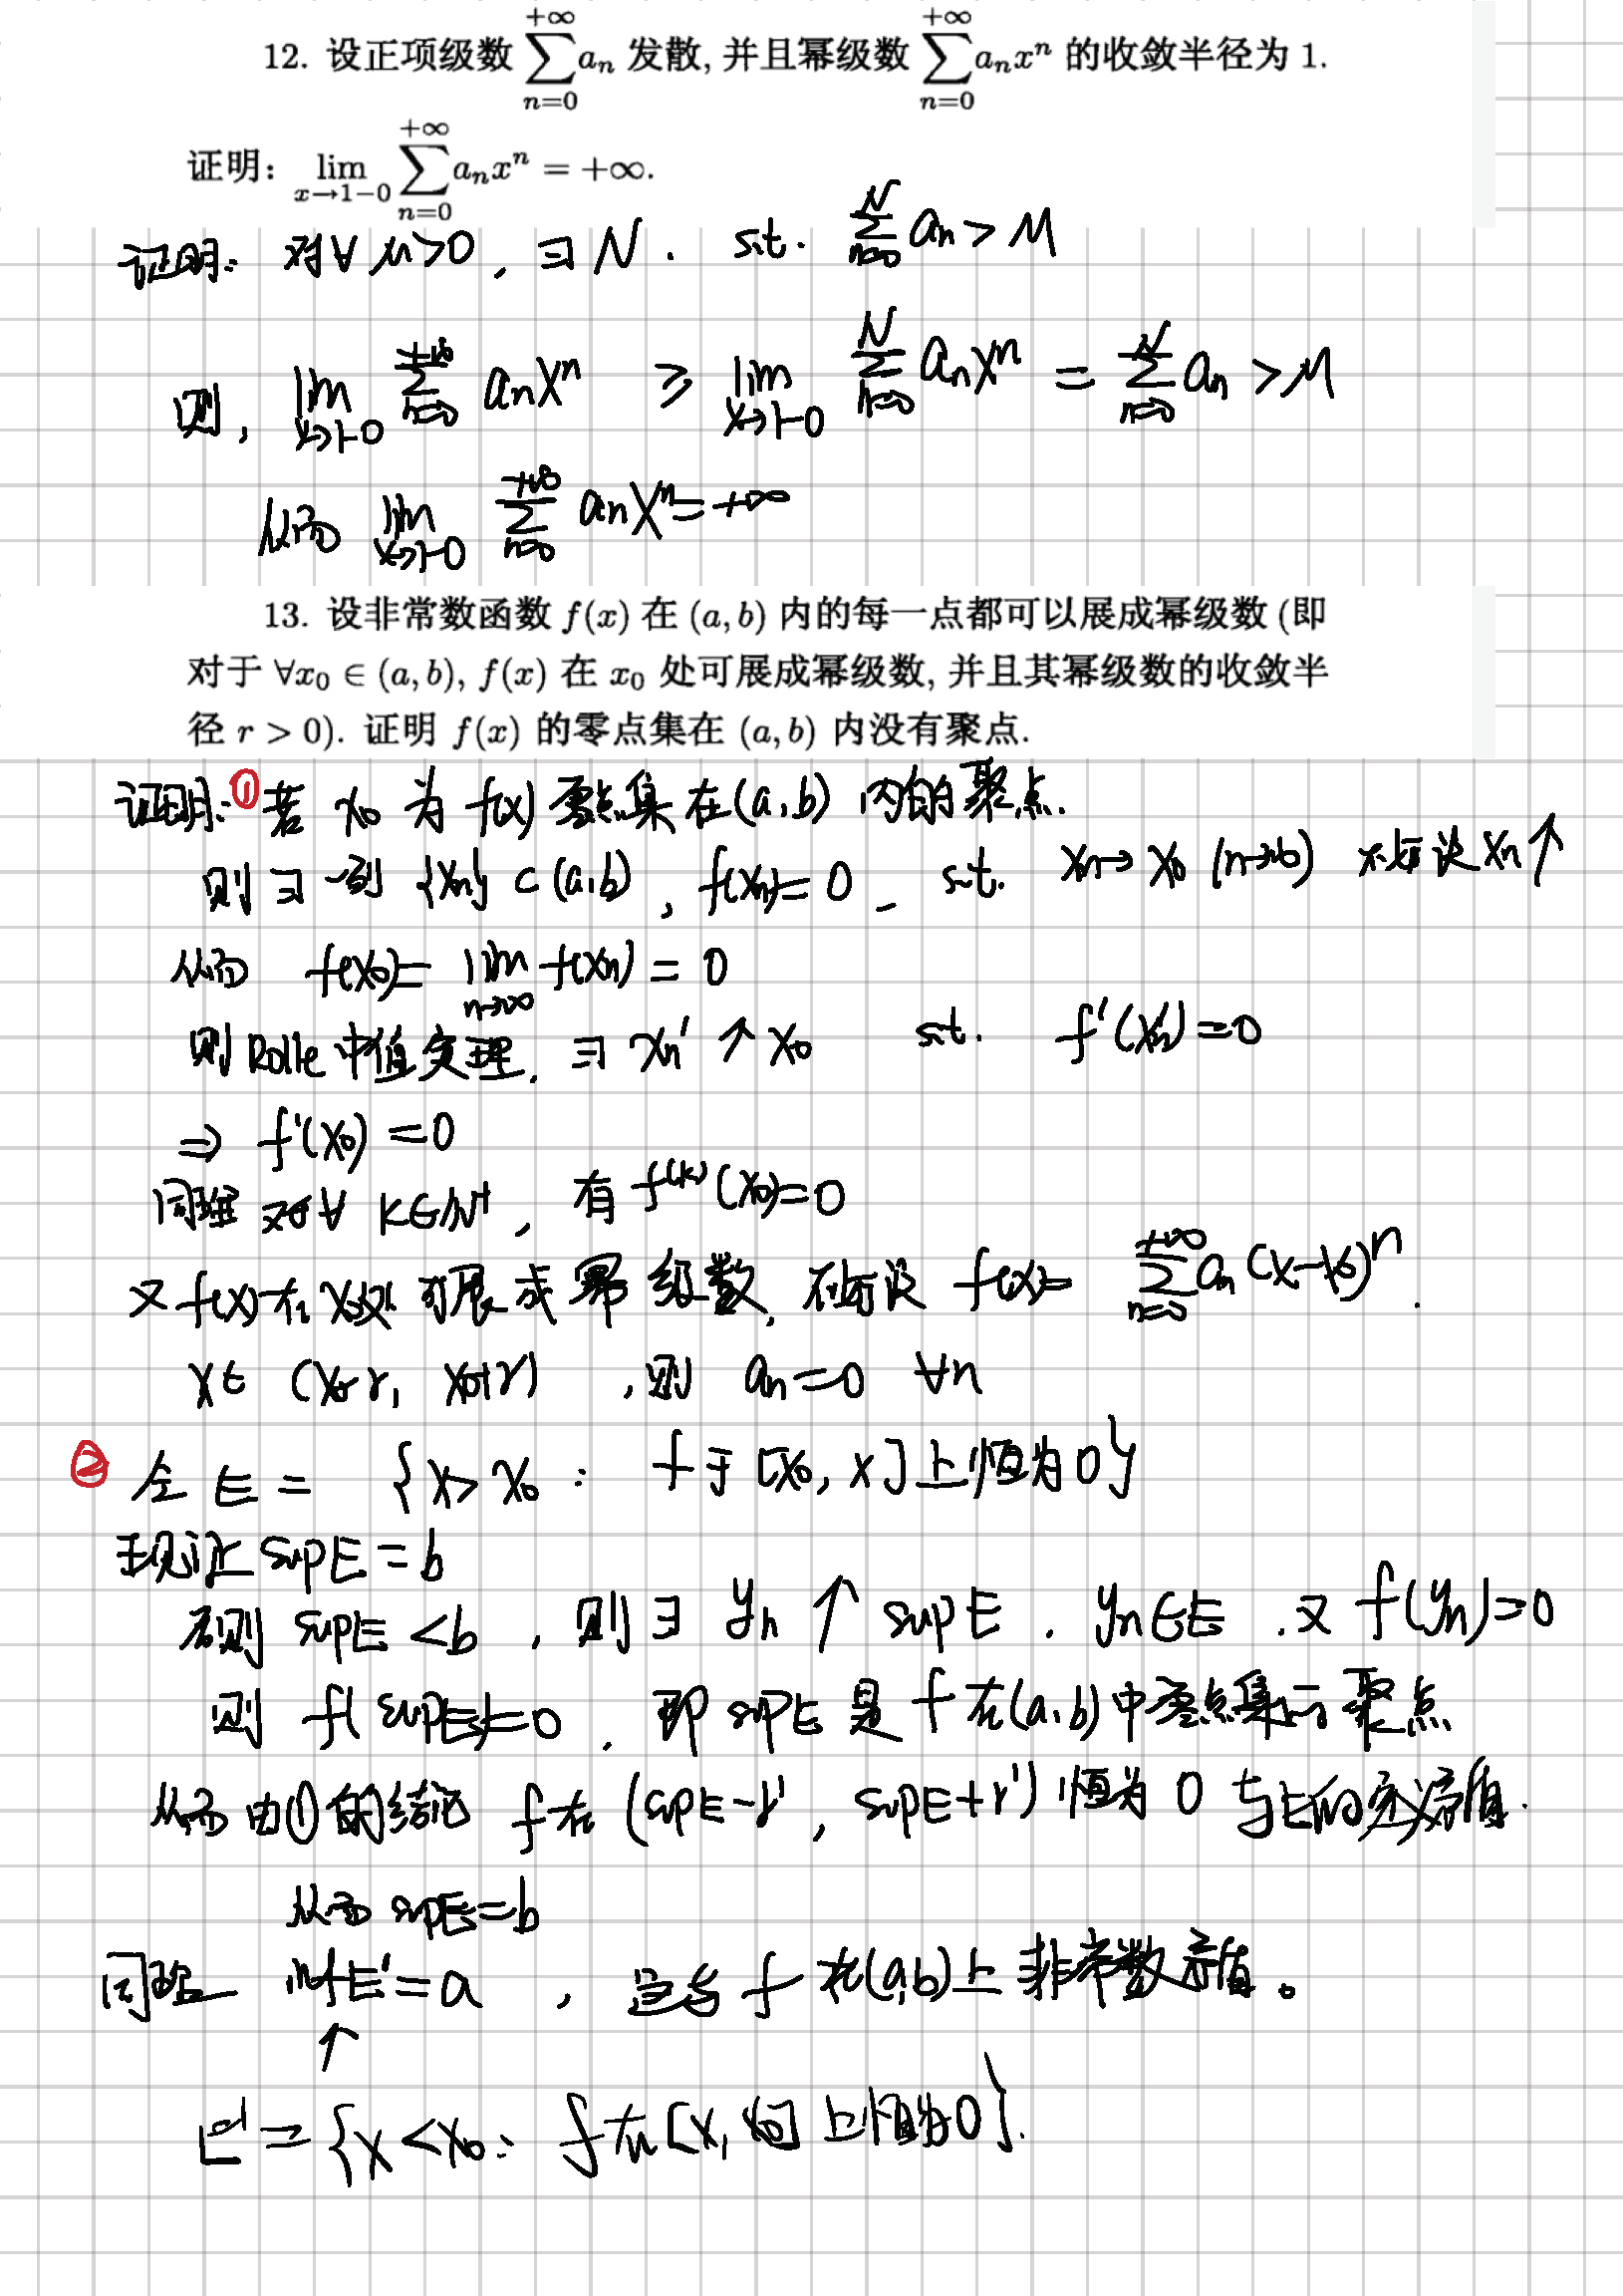 12. 设正项级数 $\sum_{n=0}^{+\infty} a_n$ 发散, 并且幂级数 $\sum_{n=0}^{+\infty} a_n x^n$ 的收敛半径为 1.
证明: $\lim_{x \to 1-0} \sum_{n=0}^{+\infty} a_n x^n = +\infty$.
证明: 对∀ M>0, ∃ N. s.t. $\sum_{n=0}^{N} a_n > M$
则, $\lim_{x \to 1-0} \sum_{n=0}^{+\infty} a_n x^n \geq \lim_{x \to 1-0} \sum_{n=0}^{N} a_n x^n = \sum_{n=0}^{N} a_n > M$
从而 $\lim_{x \to 1-0} \sum_{n=0}^{+\infty} a_n x^n = +\infty$
13. 设非常数函数 f(x) 在 (a, b) 内的每一点都可以展成幂级数 (即
对于 ∀x₀ ∈ (a, b), f(x) 在 x₀ 处可展成幂级数, 并且其幂级数的收敛半
径 r > 0). 证明 f(x) 的零点集在 (a, b) 内没有聚点.
证明: ① 若 x₀ 为 f(x) 零点集在(a,b) 内的聚点.
则 ∃ 一列 {xₙ} ⊂ (a,b), f(xₙ)=0, s.t. xₙ→x₀ (n→∞) 不妨设 xₙ↑
从而 f(x₀)= $\lim_{n \to \infty}$ f(xₙ) = 0
则 Rolle 中值定理, ∃ xₙ' ↑ x₀ s.t. f'(xₙ')=0
⇒ f'(x₀) =0
同理 对∀ k∈N⁺, 有 f⁽ᵏ⁾(x₀)=0
又 f(x) 在 x₀处 可展成幂级数, 不妨设 f(x)= $\sum_{n=0}^{+\infty} a_n (x-x_0)^n$.
x∈ (x₀-r, x₀+r), 则 aₙ=0 ∀n
② 令 E = {x> x₀ : f 于 [x₀, x] 上恒为0}
现证 supE = b
否则 supE <b, 则∃ yₙ ↑ supE. yₙ∈E. 又 f(yₙ)=0
则 f(supE)=0, 即 supE 是 f 在(a,b) 中零点集的聚点
从而由①的结论 f在 (supE-r', supE+r') 恒为 0 与E的定义矛盾.
从而 supE=b
同理 infE'=a, 这与 f 在(a,b)上非常数矛盾。
↑
E' = {x <x₀ : f 在 [x, x₀] 上恒为0}.